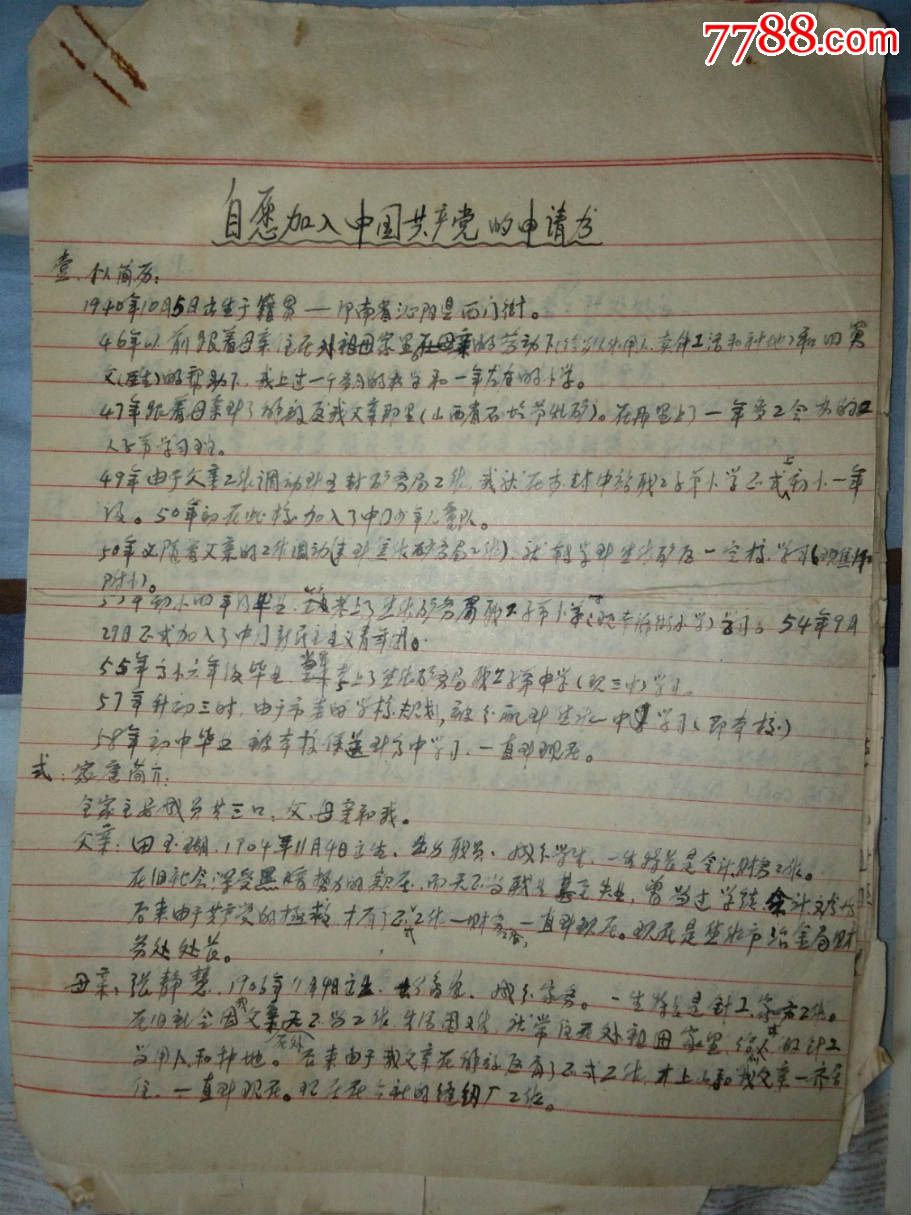 7788.com
自愿加入中国共产党的申请书
壹、个人简历:
1940年10月5日出生于籍贯—河南省泌阳县西门街。
46年以前跟着母亲住在外祖母家里在母亲的劳动下
的帮助下,我上过一个多月的私学和一年左右的小学。
47年跟着母亲到了解放区我父亲那里(山西省)。在那里上了一年多工会办的工
人子弟学习班。
49年由于父亲工作调动到 矿务局工作,我就在 职工子弟小学正式上初小一年
级。50年初在此校加入了中国少年儿童队。
50年又随着父亲的工作调动(到焦作矿务局工作),就转学到焦作矿区一完校学习
附小)。
初小四年级毕业 考上了焦作矿务局职工子弟小学 学习。54年9月
29日正式加入了中国新民主主义青年团。
55年高小六年级毕业,当年考上了焦作矿务局职工子弟中学(现三中)学习。
57年升初三时,由于市里的学校规划,被分配到焦作一中学习(即本校)
58年初中毕业被本校保送到高中学习,一直到现在。
弍:家庭简介:
全家主要成员共三口,父、母亲和我。
父亲:田玉瑚,1904年11月4日生,出身职员,成分学生,一生特长是会计、财务工作。
在旧社会深受黑暗势力的欺压,而无正当职业甚至失业,曾当过学徒,会计
后来由于共产党的拯救,才有了正式工作—财务工作,一直到现在。现在是焦作市冶金局财
务处处长。
母亲:张静慧,1905年11月4日生,成分家务。一生特长是针工、家务工作。
在旧社会因我父亲在外无正当工作,生活困难,就常住在外祖母家里,给人
当用人和种地。后来由于我父亲在解放区有了正式工作,才上 我父亲一齐居
住,一直到现在。现在在公社的缝纫厂工作。